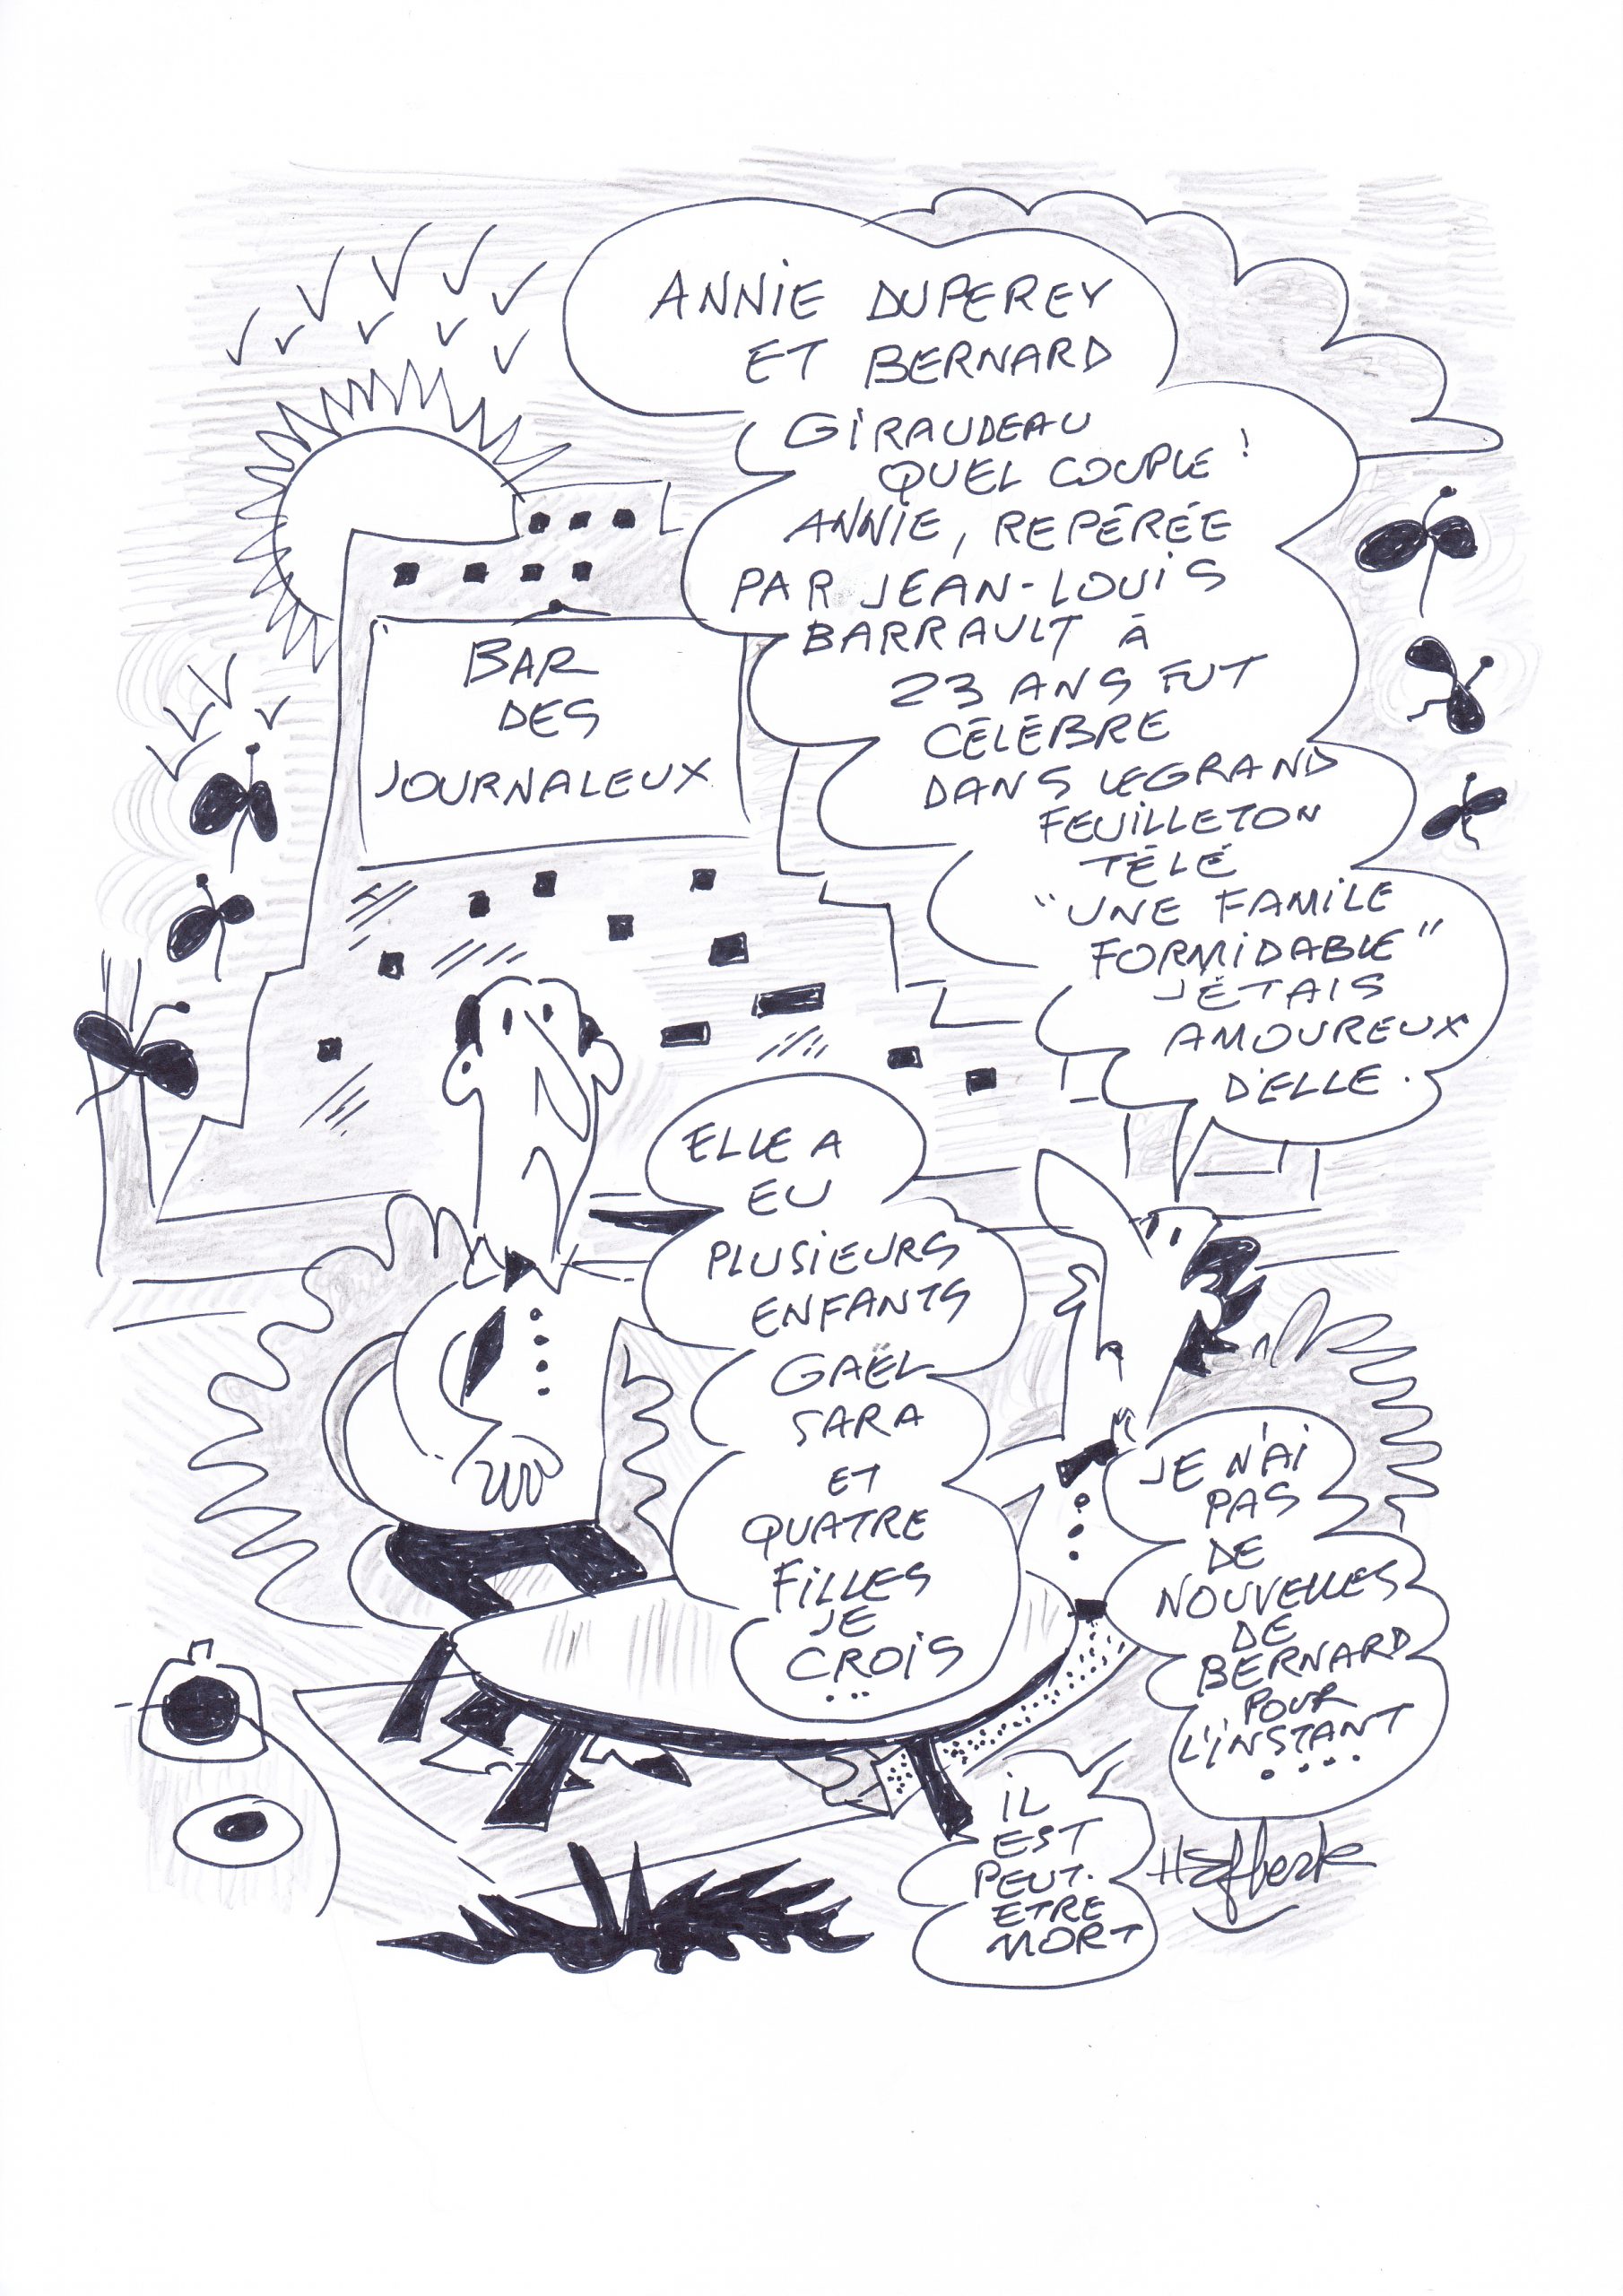 ANNIE DUPEREY
ET BERNARD
GIRAUDEAU
QUEL COUPLE !
ANNIE, REPÉRÉE
PAR JEAN-LOUIS
BARRAULT À
23 ANS FUT
CÉLÉBRE
DANS LE GRAND
FEUILLETON
TÉLÉ
"UNE FAMILE
FORMIDABLE"
J'ÉTAIS
AMOUREUX
D'ELLE.
BAR
DES
JOURNALEUX
ELLE A
EU
PLUSIEURS
ENFANTS
GAËL
SARA
ET
QUATRE
FILLES
JE
CROIS
...
JE N'AI
PAS
DE
NOUVELLES
DE
BERNARD
POUR
L'INSTANT
....
IL
EST
PEUT-
ETRE
MORT